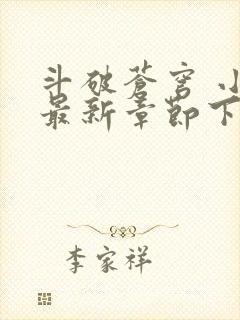 斗破苍穹 小
最新章节下
李家祥